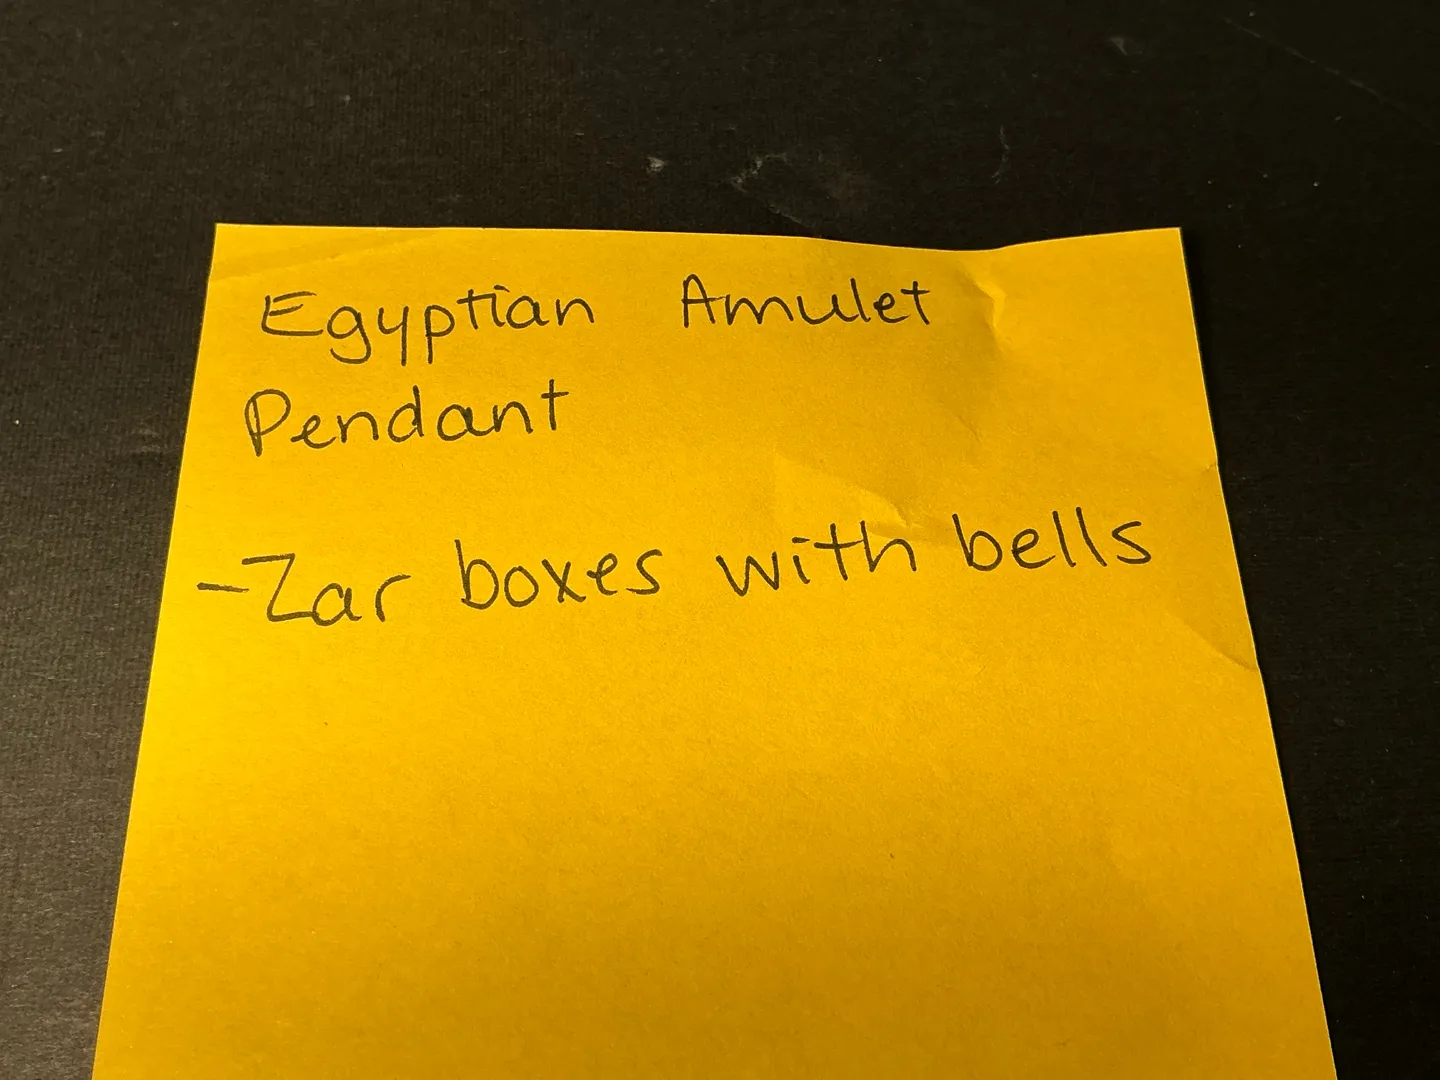 Egyptian Amulet
Pendant
-Zar boxes with bells